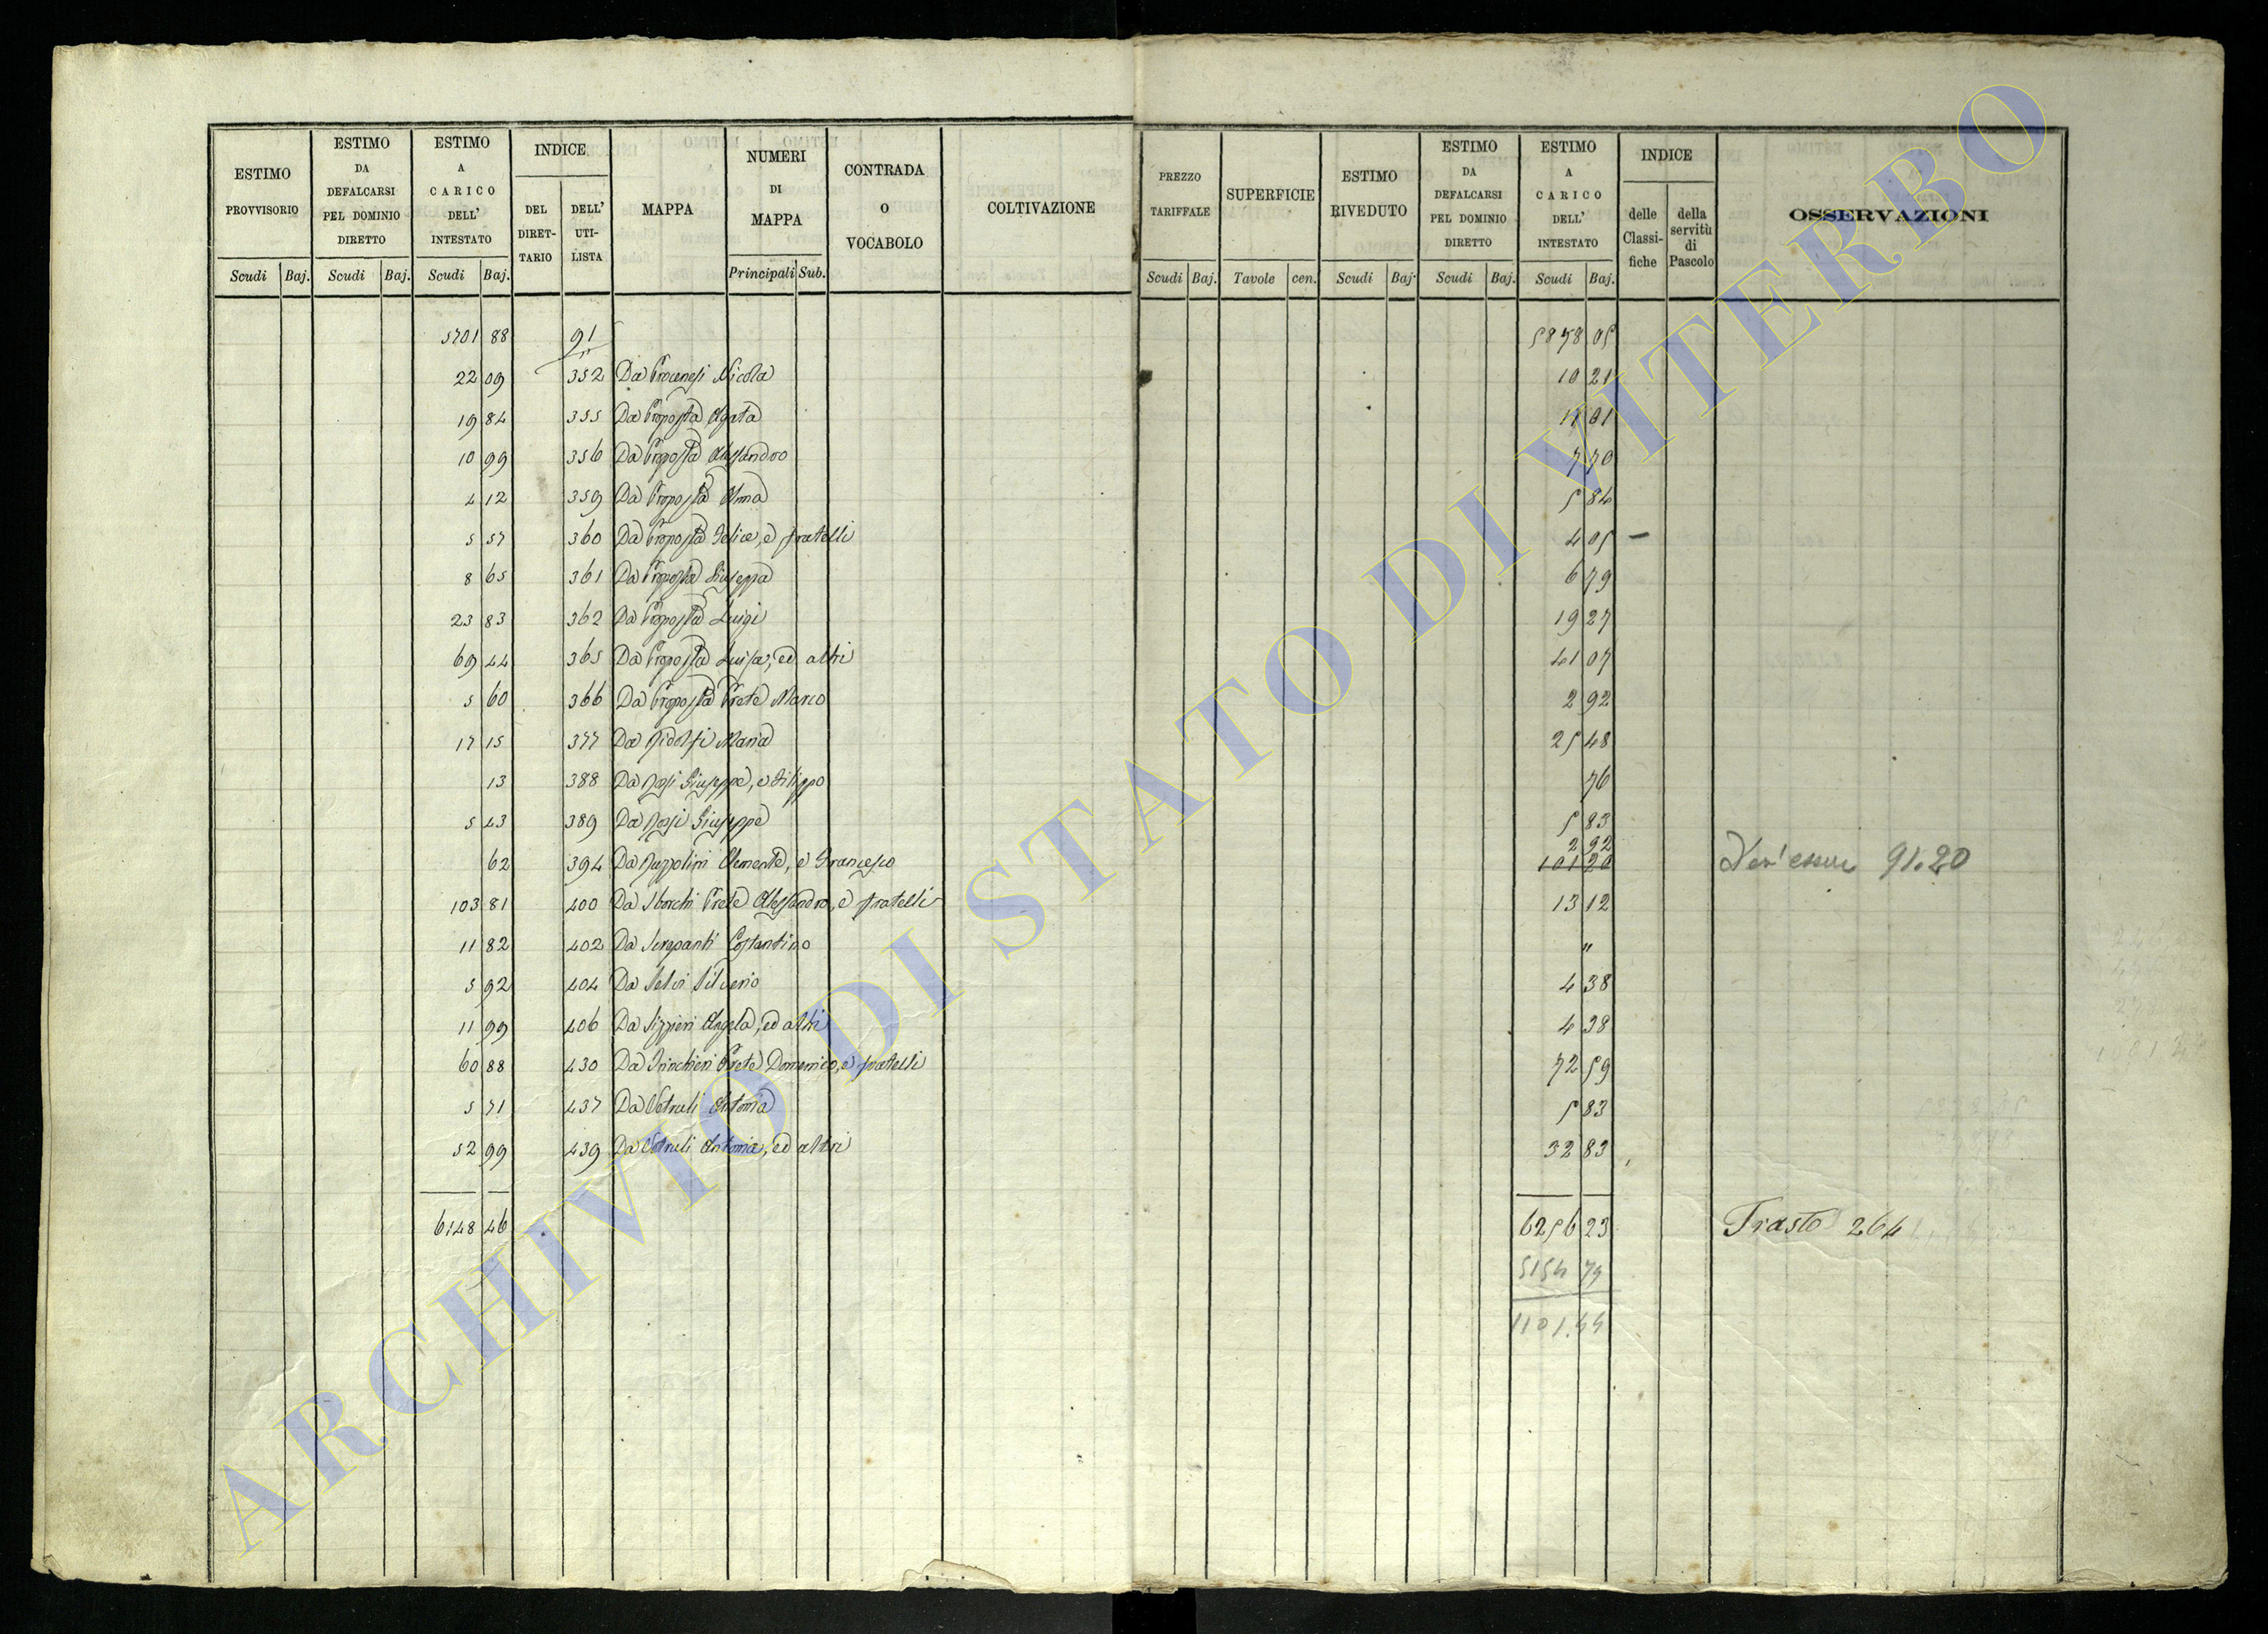 ESTIMO PROVVISORIO Scudi Baj.
ESTIMO DA DEFALCARSI PEL DOMINIO DIRETTO Scudi Baj.
ESTIMO A CARICO DELL' INTESTATO Scudi Baj.
INDICE DEL DIRET- TARIO DELL' UTI- LISTA
MAPPA
NUMERI DI MAPPA Principali Sub.
CONTRADA O VOCABOLO
COLTIVAZIONE
PREZZO TARIFFALE Scudi Baj.
SUPERFICIE Tavole cen.
ESTIMO RIVEDUTO Scudi Baj.
ESTIMO DA DEFALCARSI PEL DOMINIO DIRETTO Scudi Baj.
ESTIMO A CARICO DELL' INTESTATO Scudi Baj.
INDICE delle Classi- fiche della servitù di Pascolo
OSSERVAZIONI
5701 88 91 5878 05
22 09 352 Da Procenesi Nicola 10 21
19 84 355 Da Proposta Agata 17 01
10 99 356 Da Proposta Alessandro 7 70
4 12 359 Da Proposta Anna 5 84
5 57 360 Da Proposta Felice, e fratelli 4 05 –
8 65 361 Da Proposta Giuseppa 6 79
23 83 362 Da Proposta Luigi 19 27
69 44 365 Da Proposta Luisa, ed altri 41 07
5 60 366 Da Proposta Prete Marco 2 92
17 15 377 Da Ridolfi Maria 25 48
13 388 Da Rosi Giuseppe, e Filippo 76
5 43 389 Da Rosi Giuseppe 5 83
62 394 Da Ruzzolini Clemente, e Francesco 2 92
101 20 Dev' essere 91.20
103 81 400 Da Sborchi Prete Alessandro, e fratelli 13 12
11 82 402 Da Serapanti Costantino "
5 92 404 Da Selvi Silverio 4 38
11 99 406 Da Sizzieri Angela, ed altri 4 38
60 88 430 Da Trinchieri Prete Domenico, e fratelli 72 59
5 71 437 Da Vetruli Antonia 5 83
52 99 439 Da Vetruli Antonia, ed altri 32 83
6148 46 6256 23 Trasto 264
5154 79
1101.44
ARCHIVIO DI STATO DI VITERBO